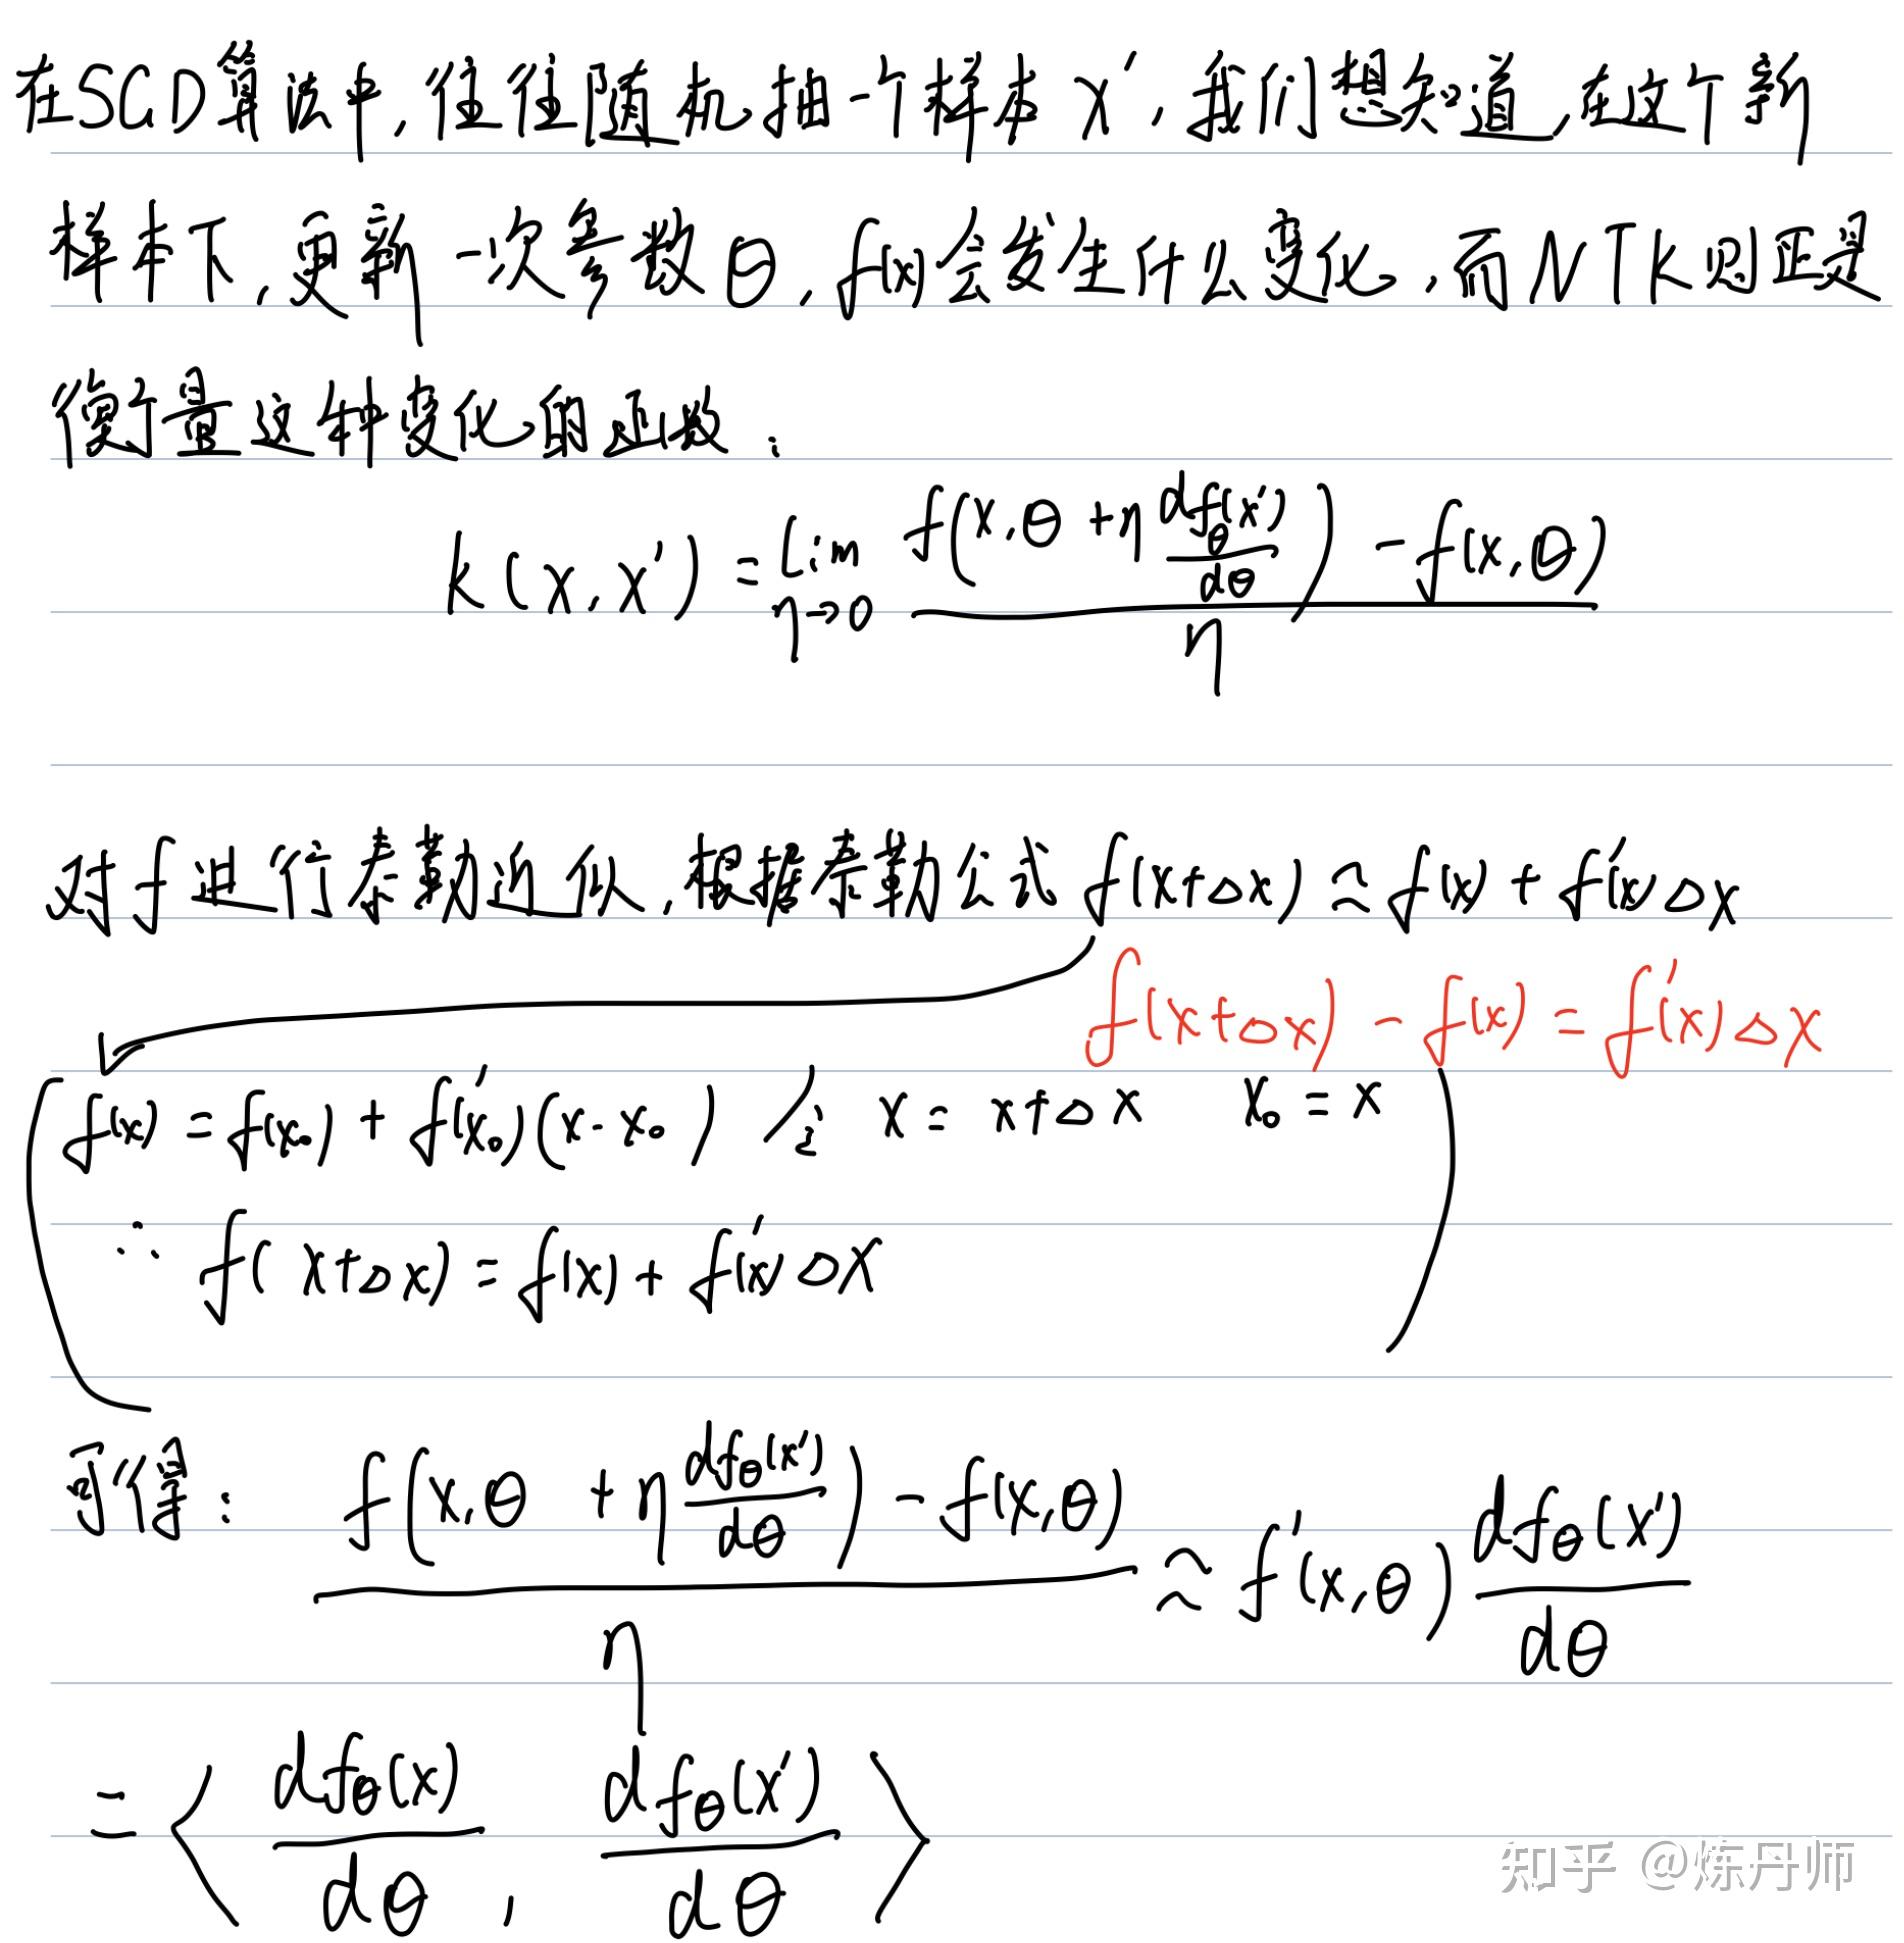 在SGD算法中,往往随机抽一个样本 x′,我们想知道,在这个新
样本下,更新一次参数θ,f(x)会发生什么变化,而NTK则正是
衡量这种变化的函数:
k(x,x′) = lim η→0 (f(x,θ + η df_θ(x′)/dθ) - f(x,θ)) / η
对f进行泰勒近似,根据泰勒公式 f(x+△x) ≈ f(x) + f′(x)△x
f(x+△x) - f(x) = f′(x)△x
f(x) = f(x₀) + f′(x₀)(x-x₀) 令 x = x+△x x₀ = x
∴ f(x+△x) = f(x) + f′(x)△x
可得: (f(x,θ + η df_θ(x′)/dθ) - f(x,θ)) / η ≈ f′(x,θ) df_θ(x′)/dθ
= ⟨ df_θ(x)/dθ , df_θ(x′)/dθ ⟩
知乎 @炼丹师